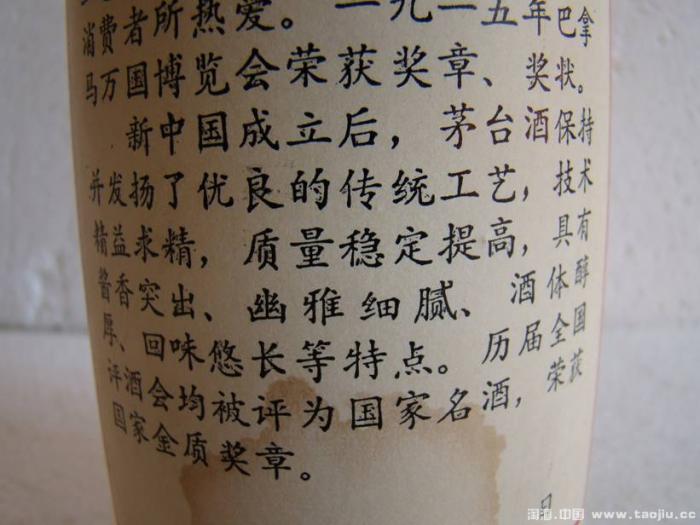 消费者所热爱。一九一五年巴拿
马万国博览会荣获奖章、奖状。
新中国成立后，茅台酒保持
并发扬了优良的传统工艺，技术
精益求精，质量稳定提高，具有
酱香突出、幽雅细腻、酒体醇
厚、回味悠长等特点。历届全国
评酒会均被评为国家名酒，荣获
国家金质奖章。
淘酒.中国 www.taojiu.cc